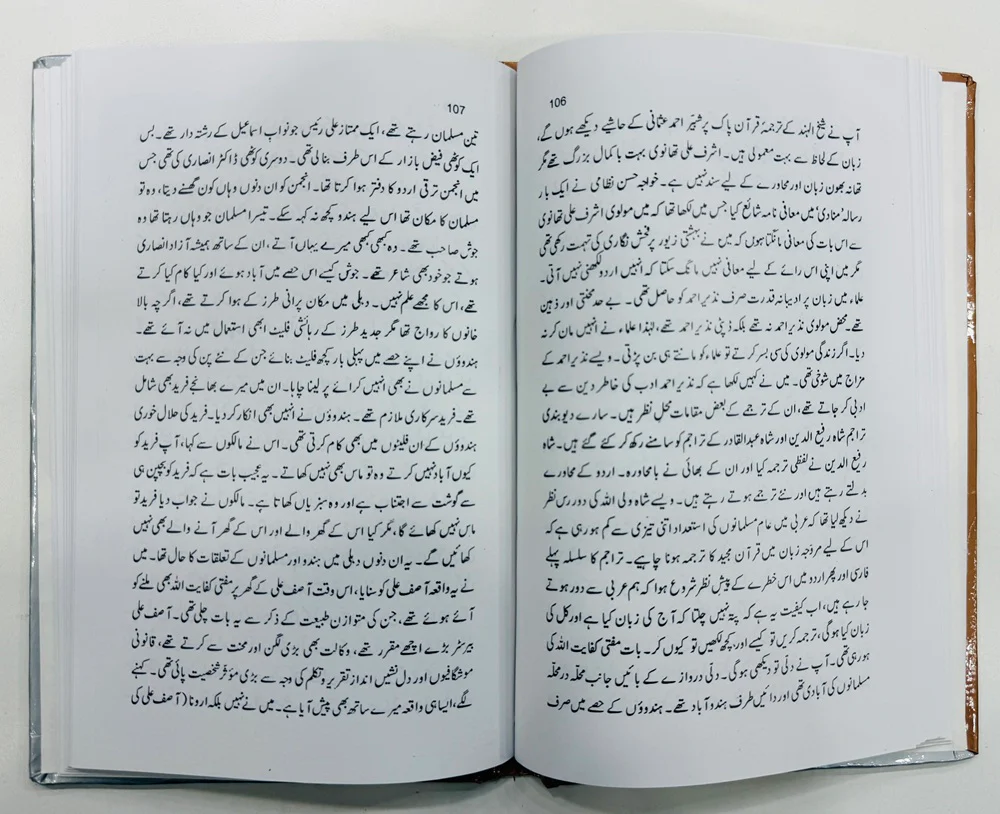 106
آپ نے شیخ الہند کے ترجمۂ قرآن پاک پر شبیر احمد عثمانی کے حاشیے دیکھے ہوں گے،
زبان کے لحاظ سے بہت معمولی ہیں۔ اشرف علی تھانوی بہت باکمال بزرگ تھے مگر
تھانہ بھون زبان اور محاورے کے لیے سند نہیں ہے۔ خواجہ حسن نظامی نے ایک بار
رسالہ ’منادی‘ میں معافی نامہ شائع کیا جس میں لکھا تھا کہ میں مولوی اشرف علی تھانوی
سے اس بات کی معافی مانگتا ہوں کہ میں نے بہشتی زیور پر فحش نگاری کی تہمت رکھی تھی
مگر میں اپنی اس رائے کے لیے معافی نہیں مانگ سکتا کہ انہیں اردو لکھنی نہیں آتی۔
علماء میں زبان پر ادیبانہ قدرت صرف نذیر احمد کو حاصل تھی۔ بے حد محنتی اور ذہین
تھے۔ محض مولوی نذیر احمد نہ تھے بلکہ ڈپٹی نذیر احمد تھے، لہٰذا علماء نے انہیں مان کر نہ
دیا۔ اگر زندگی مولوی کی سی بسر کرتے تو علماء کو مانتے ہی بن پڑتی۔ ویسے نذیر احمد کے
مزاج میں شوخی تھی۔ میں نے کہیں لکھا ہے کہ نذیر احمد ادب کی خاطر دین سے بے
ادبی کر جاتے تھے، ان کے ترجمے کے بعض مقامات محل نظر ہیں۔ سارے دیوبندی
تراجم شاہ رفیع الدین اور شاہ عبدالقادر کے تراجم کو سامنے رکھ کر کئے گئے ہیں۔ شاہ
رفیع الدین نے لفظی ترجمہ کیا اور ان کے بھائی نے بامحاورہ۔ اردو کے محاورے
بدلتے رہتے ہیں اور نئے ترجمے ہوتے رہتے ہیں۔ ویسے شاہ ولی اللہ کی دور رس نظر
نے دیکھ لیا تھا کہ عربی میں عام مسلمانوں کی استعداد اتنی تیزی سے کم ہو رہی ہے کہ
اس کے لیے مروّجہ زبان میں قرآن مجید کا ترجمہ ہونا چاہیے۔ تراجم کا سلسلہ پہلے
فارسی اور پھر اردو میں اس خطرے کے پیش نظر شروع ہوا کہ ہم عربی سے دور ہوتے
جا رہے ہیں، اب کیفیت یہ ہے کہ پتہ نہیں چلتا کہ آج کی زبان کیا ہے اور کل کی
زبان کیا ہو گی، ترجمہ کریں تو کیسے اور کچھ لکھیں تو کیوں کر۔ بات مفتی کفایت اللہ کی
ہو رہی تھی۔ آپ نے دلّی تو دیکھی ہو گی۔ دلّی دروازے کے بائیں جانب محلّہ در محلّہ
مسلمانوں کی آبادی تھی اور دائیں طرف ہندو آباد تھے۔ ہندوؤں کے حصے میں صرف
107
تین مسلمان رہتے تھے، ایک ممتاز علی رئیس جو نواب اسماعیل کے رشتہ دار تھے۔ بس
ایک کوٹھی فیض بازار کے اس طرف بنا لی تھی۔ دوسری کوٹھی ڈاکٹر انصاری کی تھی جس
میں انجمن ترقی اردو کا دفتر ہوا کرتا تھا۔ انجمن کو ان دنوں وہاں کون گھسنے دیتا، وہ تو
مسلمان کا مکان تھا اس لیے ہندو کچھ نہ کہہ سکے۔ تیسرا مسلمان جو وہاں رہتا تھا وہ
جوش صاحب تھے۔ وہ کبھی کبھی میرے یہاں آتے، ان کے ساتھ ہمیشہ آزاد انصاری
ہوتے جو خود بھی شاعر تھے۔ جوش کیسے اس حصے میں آباد ہوئے اور کیا کام کیا کرتے
تھے، اس کا مجھے علم نہیں۔ دہلی میں مکان پرانی طرز کے ہوا کرتے تھے، اگرچہ بالا
خانوں کا رواج تھا مگر جدید طرز کے رہائشی فلیٹ ابھی استعمال میں نہ آئے تھے۔
ہندوؤں نے اپنے حصے میں پہلی بار کچھ فلیٹ بنائے جن کے نئے پن کی وجہ سے بہت
سے مسلمانوں نے بھی انہیں کرائے پر لینا چاہا۔ ان میں میرے بھانجے فرید بھی شامل
تھے۔ فرید سرکاری ملازم تھے۔ ہندوؤں نے انہیں بھی انکار کر دیا۔ فرید کی حلال خوری
ہندوؤں کے ان فلیٹوں میں بھی کام کرتی تھی۔ اس نے مالکوں سے کہا، آپ فرید کو
کیوں آباد نہیں کرتے وہ تو ماس بھی نہیں کھاتے۔ یہ عجیب بات ہے کہ فرید کو بچپن ہی
سے گوشت سے اجتناب ہے اور وہ سبزیاں کھاتا ہے۔ مالکوں نے جواب دیا فرید تو
ماس نہیں کھائے گا، مگر کیا اس کے گھر والے اور اس کے گھر آنے والے بھی نہیں
کھائیں گے۔ یہ ان دنوں دہلی میں ہندو اور مسلمانوں کے تعلقات کا حال تھا۔ میں
نے یہ واقعہ آصف علی کو سنایا، اس وقت آصف علی کے گھر پر مفتی کفایت اللہ بھی ملنے کو
آئے ہوئے تھے، جن کی متوازن طبیعت کے ذکر سے یہ بات چلی تھی۔ آصف علی
بیرسٹر بڑے اچھے مقرر تھے، وکالت بھی بڑی لگن اور محنت سے کرتے تھے، قانونی
موشگافیوں اور دل نشیں انداز تقریر و تکلم کی وجہ سے بڑی مؤثر شخصیت پائی تھی۔ کہنے
لگے، ایسا ہی واقعہ میرے ساتھ بھی پیش آیا ہے۔ میں نے نہیں بلکہ ارونا (آصف علی کی